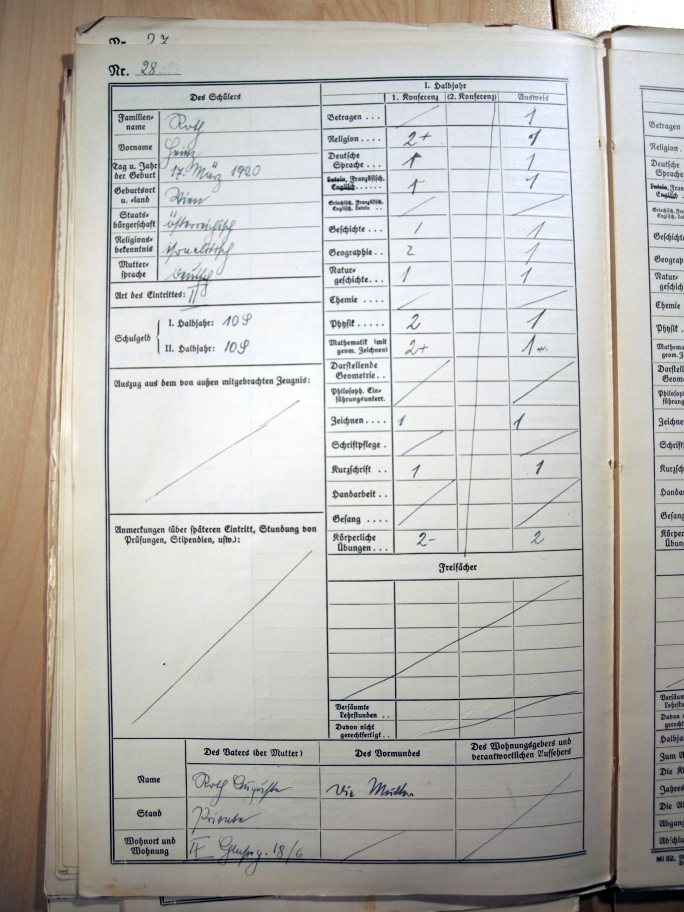 Nr. 27
Nr. 28
Des Schülers
I. Halbjahr
1. Konferenz (2. Konferenz) Ausweis
Familien-
name Roth
Vorname Heinz
Tag u. Jahr
der Geburt 17. März 1920
Geburtsort
u. -land Wien
Staats-
bürgerschaft österreichisch
Religions-
bekenntnis israelitisch
Mutter-
sprache deutsch
Art des Eintrittes:
Schulgeld
I. Halbjahr: 10 S
II. Halbjahr: 10 S
Auszug aus dem von außen mitgebrachten Zeugnis:
Anmerkungen (über späteren Eintritt, Stundung von
Prüfungen, Stipendien, usw.):
Betragen . . . 1
Religion . . . . 2+ 1
Deutsche
Sprache . . . 1 1
Latein, Französisch,
Englisch . . . . . . 1 1
Griechisch, Französisch,
Englisch, Latein . .
Geschichte . . 1 1
Geographie . . 2 1
Natur-
geschichte . . . 1 1
Chemie . . . .
Physik . . . . . 2 1
Mathematik (mit
geom. Zeichnen) 2+ 1
Darstellende
Geometrie . .
Philosoph. Ein-
führungsunterr.
Zeichnen . . . . 1 1
Schriftpflege .
Kurzschrift . . 1 1
Handarbeit . .
Gesang . . . .
Körperliche
Übungen . . . 2- 2
Freifächer
Versäumte
Lehrstunden . .
Davon nicht
gerechtfertigt . .
Des Vaters (der Mutter) Des Vormundes Des Wohnungsgebers und
verantwortlichen Aufsehers
Name Roth Auguste Die Mutter
Stand Private
Wohnort und
Wohnung 18/6
Betragen
Religion .
Deutsche
Sprache
Latein, Französ
Englisch
Griechisch, Französ
Englisch, Latein
Geschicht
Geograph
Natur-
geschicht
Chemie
Physik .
Mathema
geom. Zeich
Darstell
Geomet
Philosoph
führungs
Zeichnen
Schriftp
Kurzschr
Handarb
Gesang
Körper
Übun
Versäum
Lehrstun
Davon n
gerechtf
Halbja
Zum A
Die K
Jahres
Die A
Abgang
Abschlu